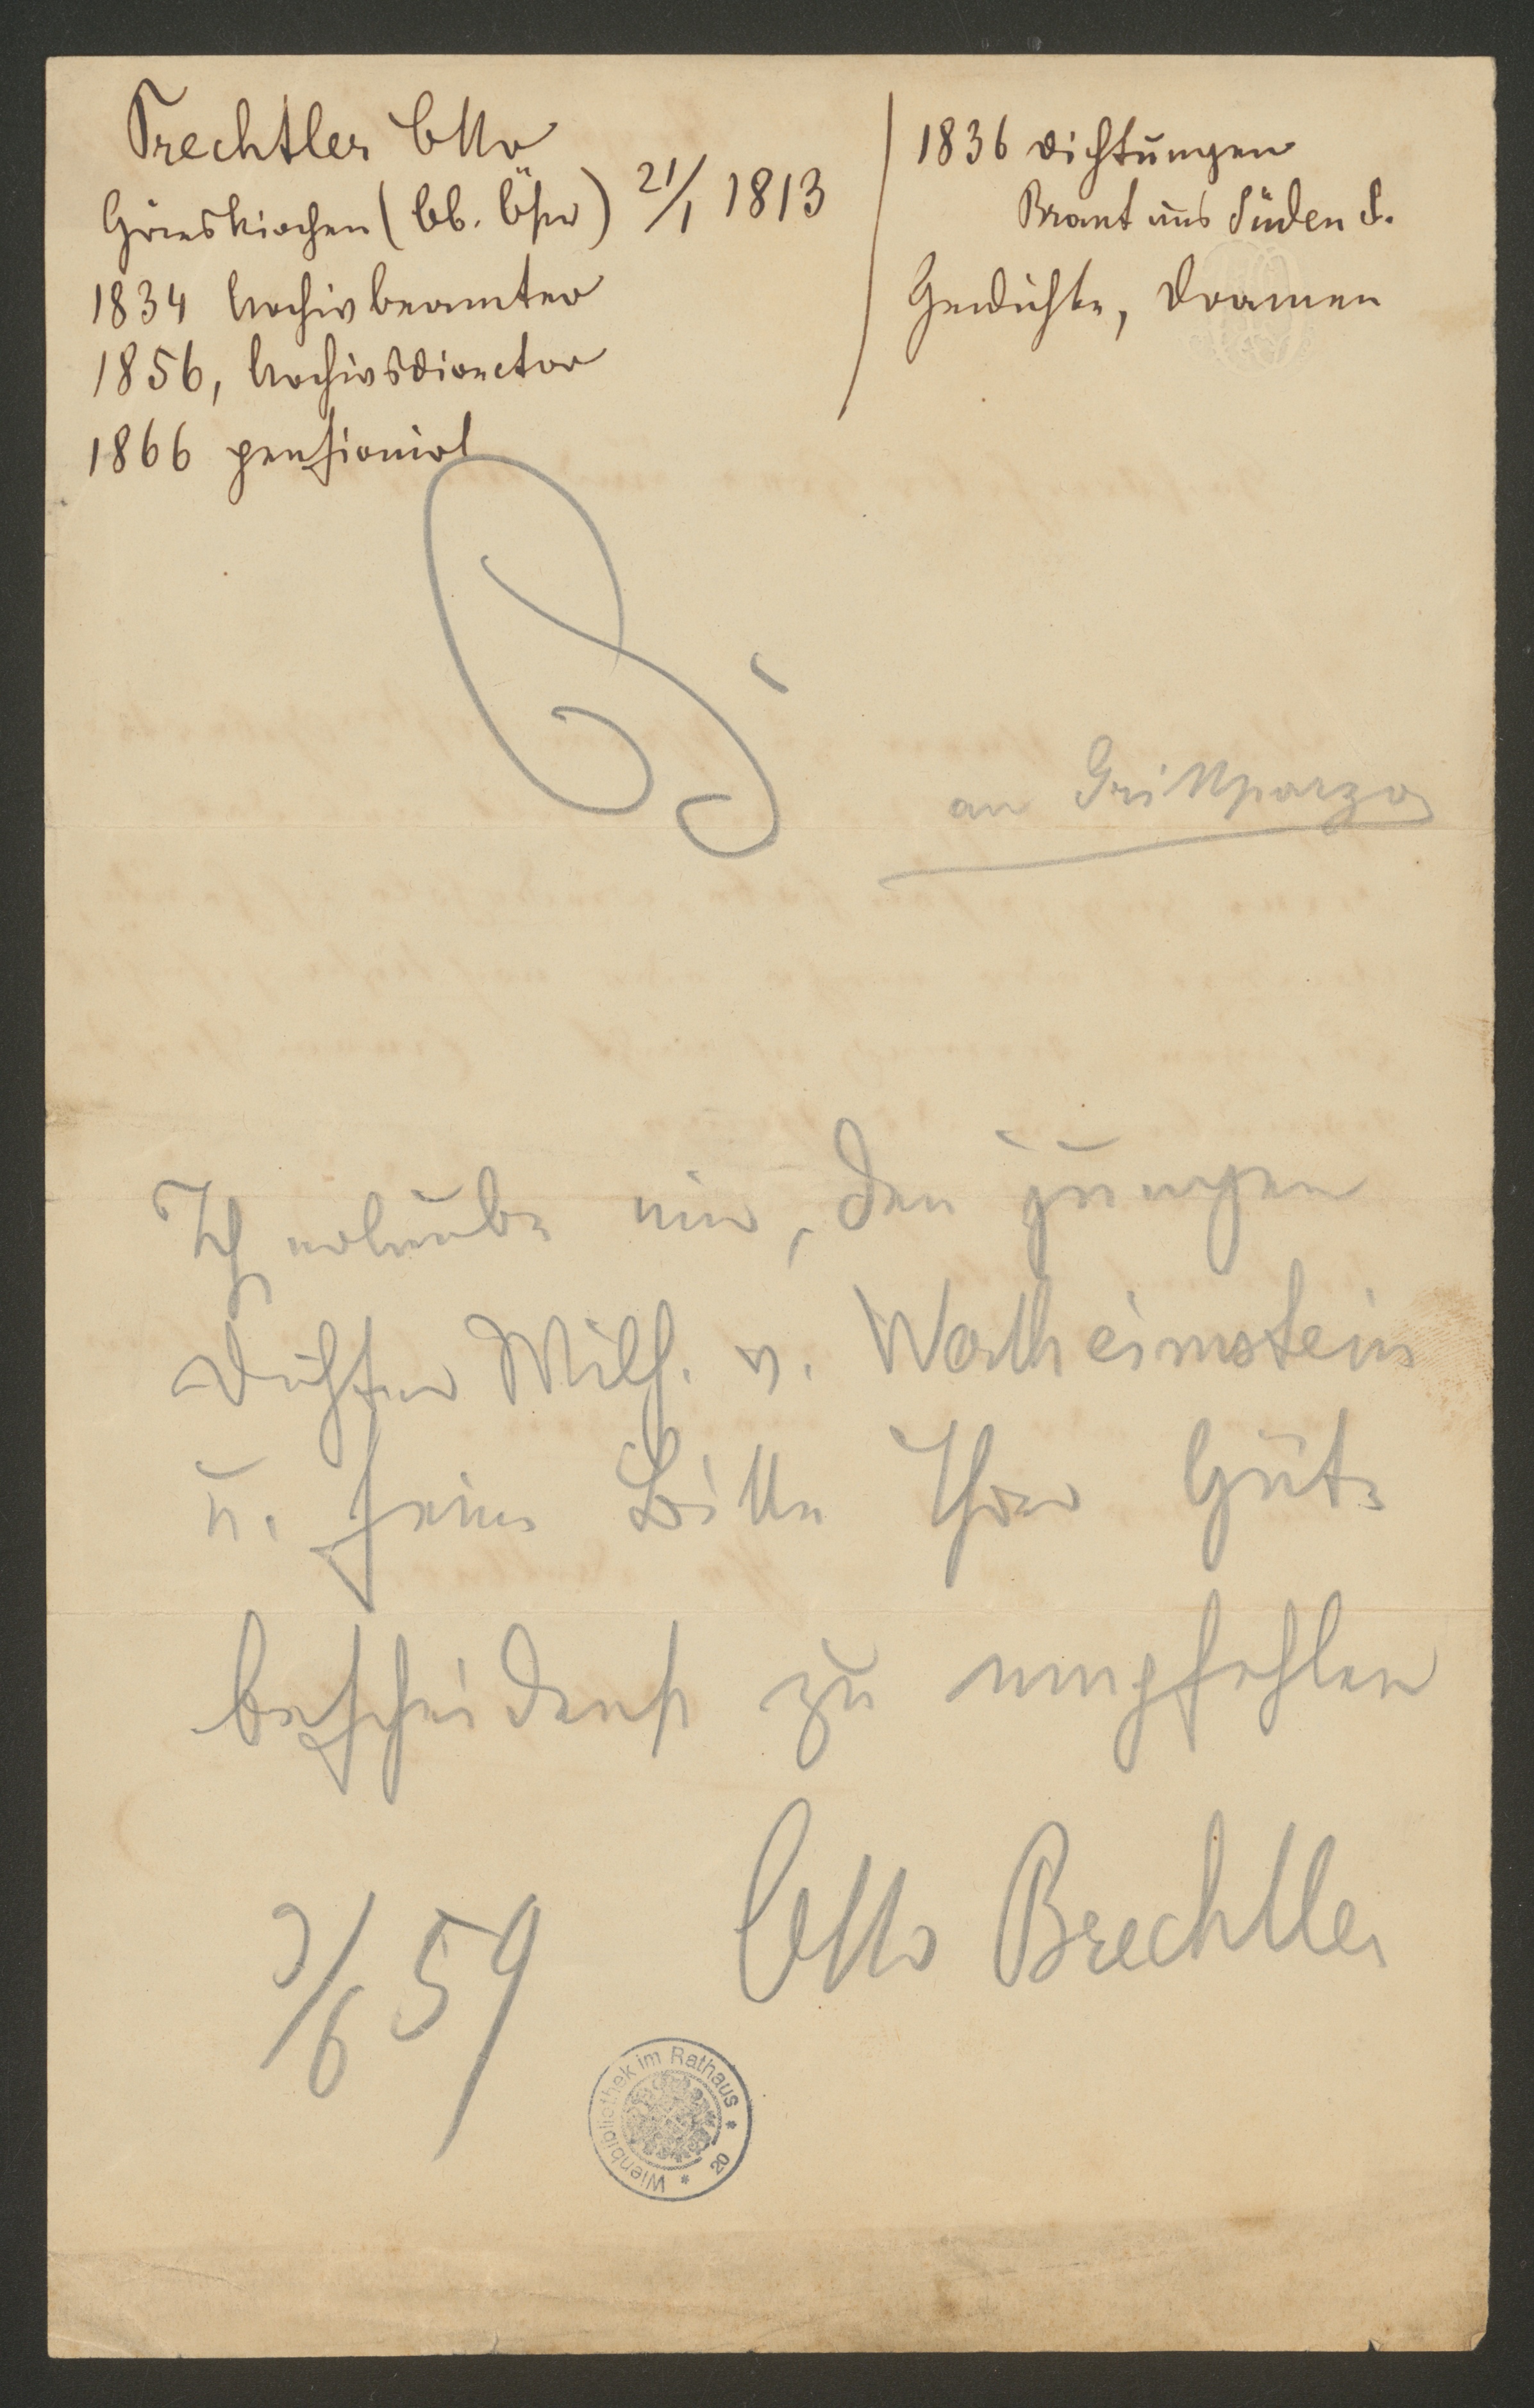 Prechtler Otto
Grieskirchen (Ob. Öst) 21/1 1813
1834 Archivbeamter
1856, Archivsdirector
1866 pensionirt
1836 Dichtungen
Gedichte, Dramen
an Grillparzer
Ich erlaube mir, den jungen
Dichter Wilh. v. Wertheimstein
u. seine Bitte Ihrer Güte
bescheidenst zu empfehlen
Otto Prechtler
/6 59
Wienbibliothek im Rathaus * 20 *